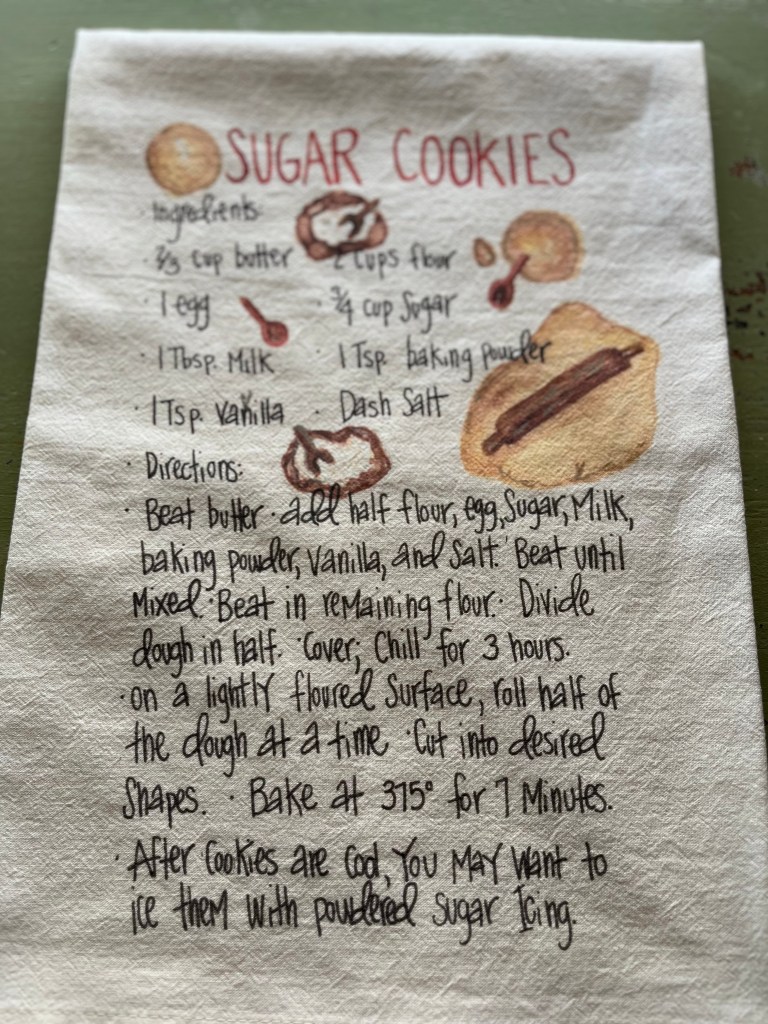 SUGAR COOKIES
Ingredients:
· 2/3 cup butter · 2 cups flour
· 1 egg · 3/4 cup Sugar
· 1 Tbsp. Milk · 1 Tsp baking powder
· 1 Tsp. Vanilla · Dash Salt
· Directions:
· Beat butter · add half flour, egg, Sugar, Milk,
baking powder, Vanilla, and Salt. · Beat until
Mixed · Beat in remaining flour. · Divide
dough in half. · Cover; Chill for 3 hours.
· on a lightly floured Surface, roll half of
the dough at a time · Cut into desired
Shapes. · Bake at 375° for 7 Minutes.
· After Cookies are Cool, You May Want to
ice them with powdered sugar Icing.